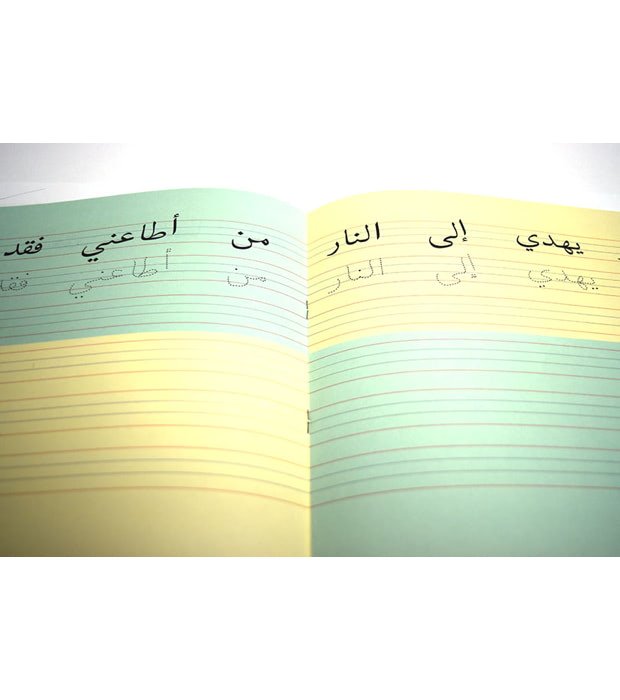 يهدي إلى النار
يهدي إلى النار
من أطاعني فقد
من أطاعني فقد